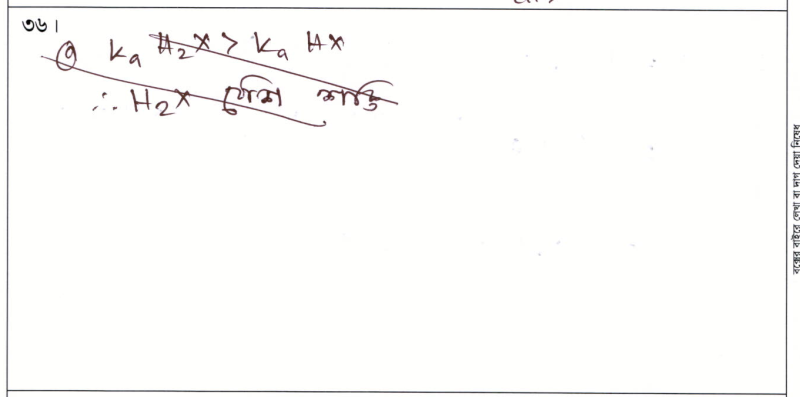 ৩৬।
Ka H₂X > Ka HX
∴ H₂X বেশি
বক্সের বাইরে লেখা বা দাগ দেয়া নিষেধ